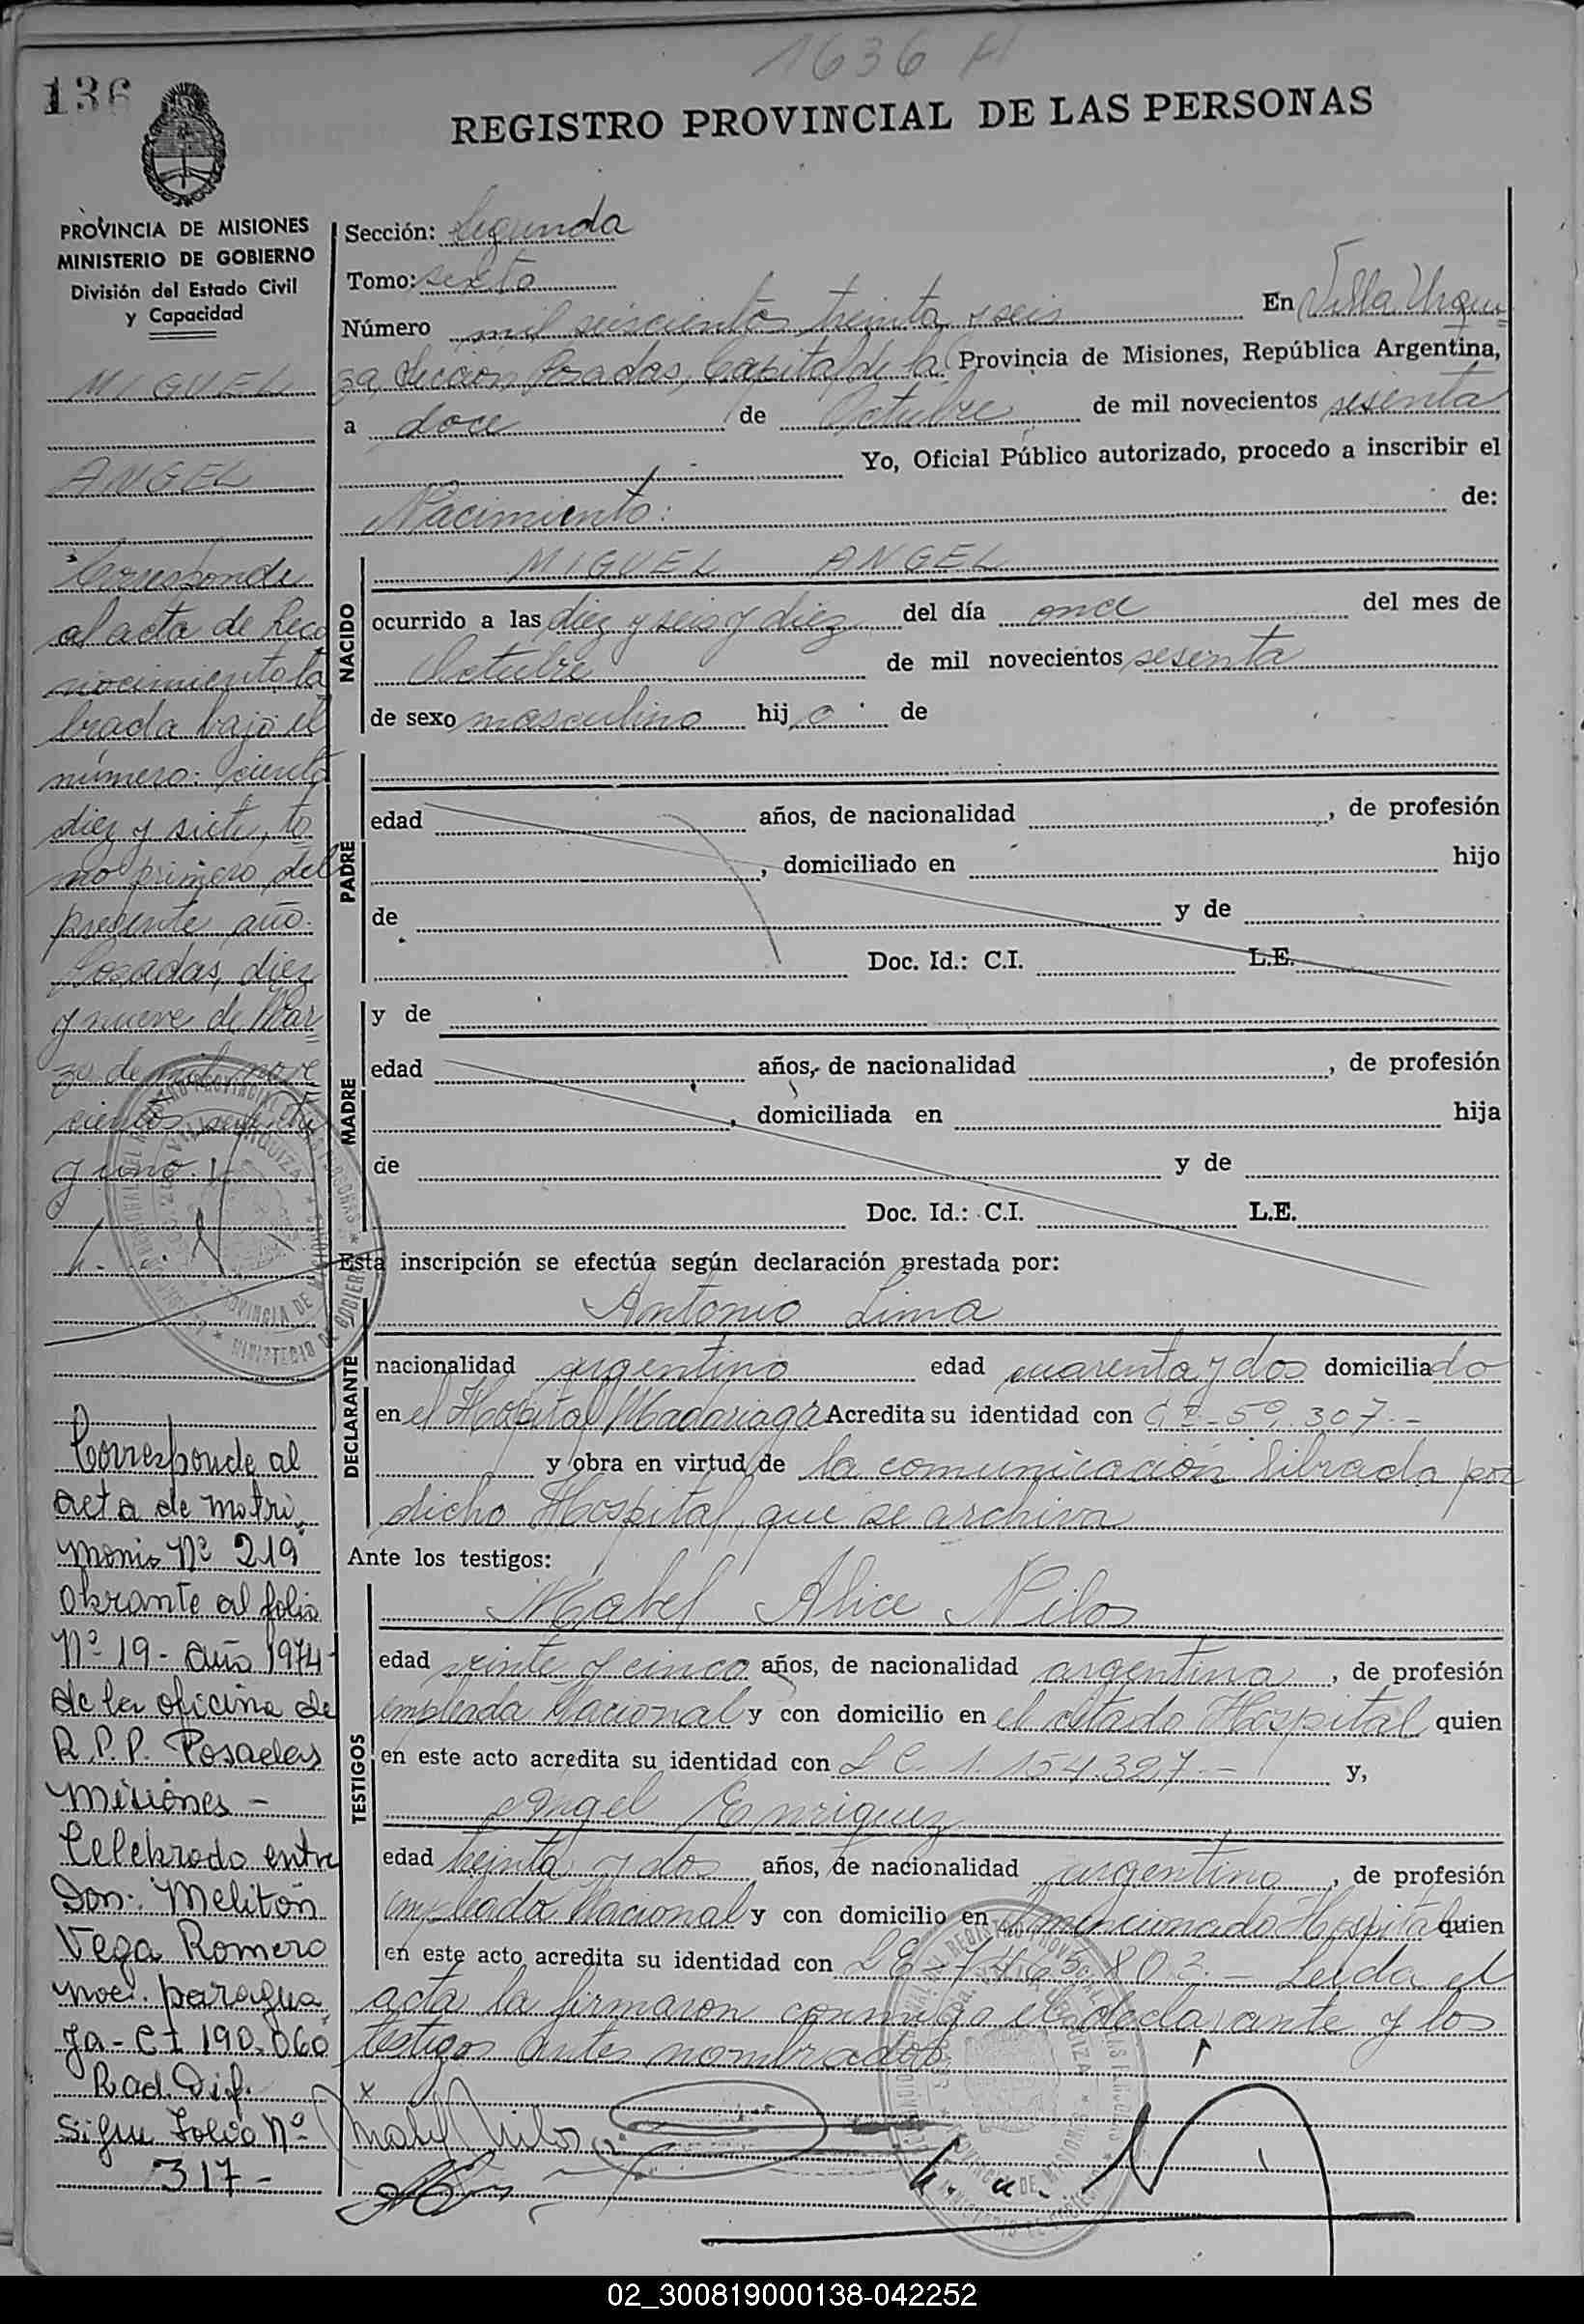 1636 A
136
REGISTRO PROVINCIAL DE LAS PERSONAS
PROVINCIA DE MISIONES
MINISTERIO DE GOBIERNO
División del Estado Civil
y Capacidad
MIGUEL
ANGEL
Corresponde
al acta de Reco
nocimiento la
brada bajo el
número: ciento
diez y siete, to
mo primero del
presente año.
Posadas, diez
y nueve de Mar
zo de mil nove
cientos sesenta
y uno.
Corresponde al
acta de matri
monio Nº 219
obrante al folio
Nº 19 - año 1974
de la oficina de
R.P.P. Posadas
Misiones -
Celebrado entre
Don: Melitón
Vega Romero
nac. paragua
ya - CI 190.060
Rad. Dif.
Sigue Folio Nº
317 -
Sección: Segunda
Tomo: sexto
Número mil seiscientos treinta y seis En Villa Urqui
za, Sección Posadas, Capital de la Provincia de Misiones, República Argentina,
a doce de Octubre de mil novecientos sesenta
Yo, Oficial Público autorizado, procedo a inscribir el
Nacimiento: de:
NACIDO
MIGUEL ANGEL
ocurrido a las diez y seis y diez del día once del mes de
Octubre de mil novecientos sesenta
de sexo masculino hijo de
PADRE
edad años, de nacionalidad , de profesión
, domiciliado en hijo
de y de
Doc. Id.: C.I. L.E.
MADRE
y de
edad años, de nacionalidad , de profesión
, domiciliada en hija
de y de
Doc. Id.: C.I. L.E.
Esta inscripción se efectúa según declaración prestada por:
DECLARANTE
Antonio Lima
nacionalidad argentino edad cuarenta y dos domiciliado
en el Hospital Madariaga Acredita su identidad con 59.307.-
y obra en virtud de la comunicación librada por
dicho Hospital, que se archiva
Ante los testigos:
TESTIGOS
Mabel Alice Nilos
edad veinte y cinco años, de nacionalidad argentina, de profesión
empleada Nacional y con domicilio en el citado Hospital quien
en este acto acredita su identidad con L C. 1.154.327.- y,
Angel Enriquez
edad treinta y dos años, de nacionalidad argentina, de profesión
empleado Nacional y con domicilio en el mencionado Hospital quien
en este acto acredita su identidad con L E - Leida el
acta la firmaron conmigo el declarante y los
testigos antes nombrados.
Mabel Nilos
02_300819000138-042252